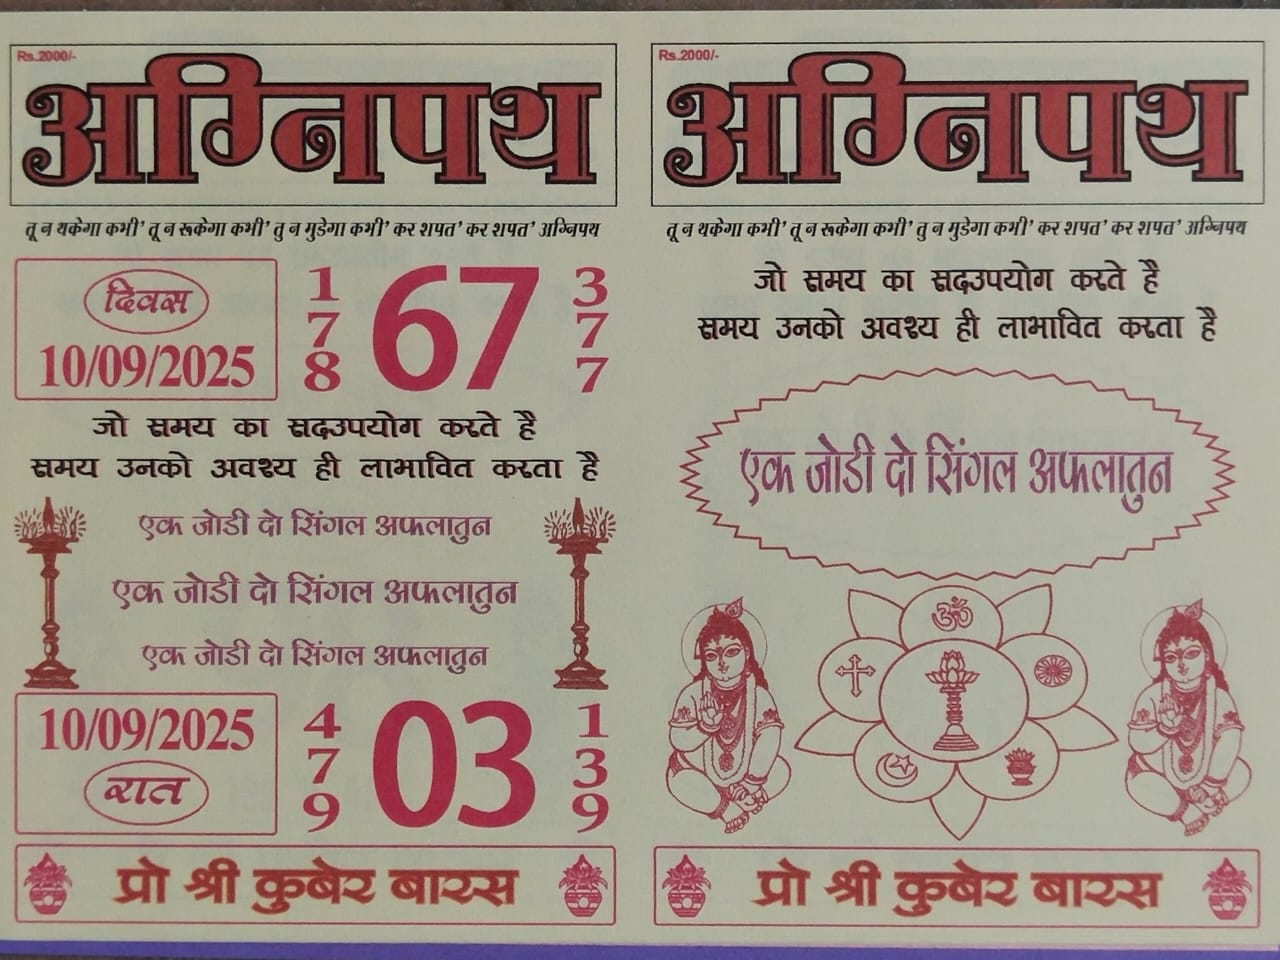 Rs.2000/-
अग्निपथ
तू न थकेगा कभी' तू न रूकेगा कभी' तु न मुडेगा कभी' कर शपत' कर शपत' अग्निपथ
दिवस
10/09/2025
1
7
8
67
3
7
7
जो समय का सदउपयोग करते है
समय उनको अवश्य ही लाभावित करता है
एक जोडी दो सिंगल अफलातुन
एक जोडी दो सिंगल अफलातुन
एक जोडी दो सिंगल अफलातुन
10/09/2025
रात
4
7
9
03
1
3
9
प्रो श्री कुबेर बारस
Rs.2000/-
अग्निपथ
तू न थकेगा कभी' तू न रूकेगा कभी' तु न मुडेगा कभी' कर शपत' कर शपत' अग्निपथ
जो समय का सदउपयोग करते है
समय उनको अवश्य ही लाभावित करता है
एक जोडी दो सिंगल अफलातुन
ॐ
प्रो श्री कुबेर बारस